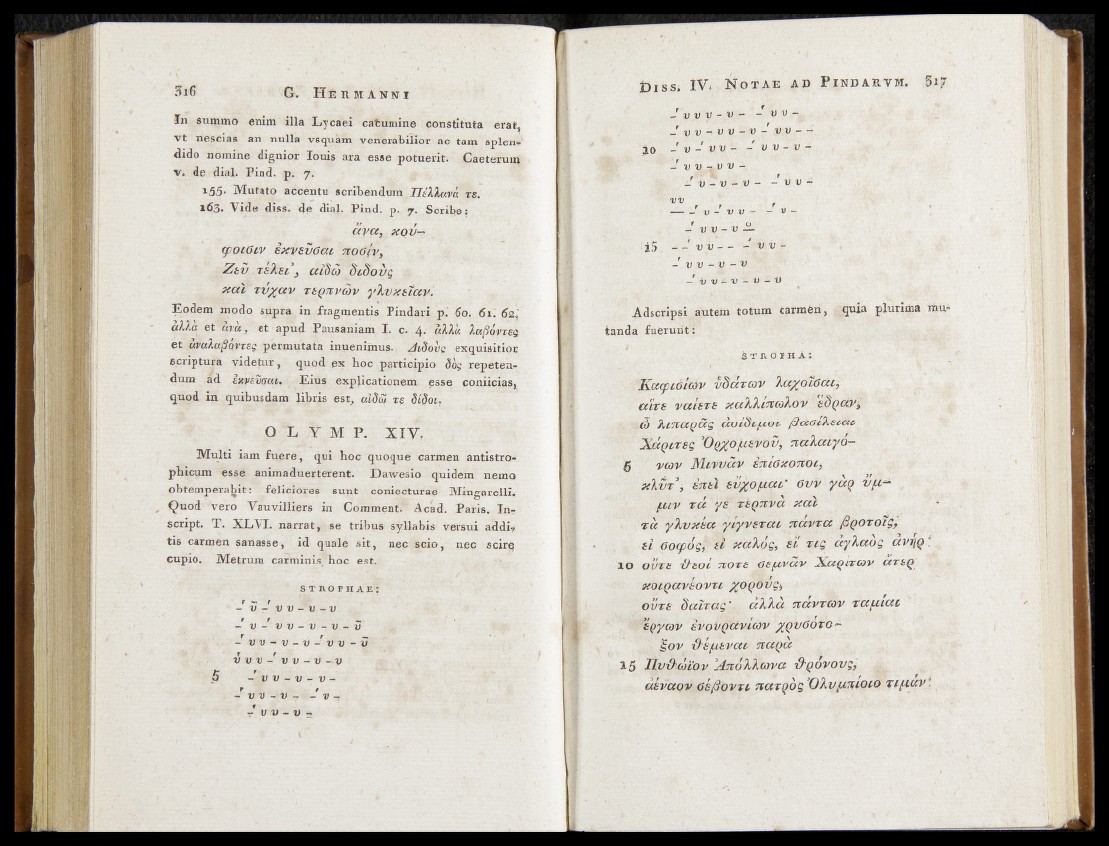 316 G. HERMANNI
In summo enim illa Lycaei catumine constituta erat,
vt nescias an nulla vsquam venerabilior ac tam splen-
dido nomine dignior Iouis ara esse potuerit. Caeterum
v. de dial. Pind. p. 7.
155. Mutato accentu scribendum Πέλλανά τε.
163. Vide diss. de dial. Pind. p. 7. Scribe:
ἄνα, κού-
φοισιν ἐκνεῦσαι ποσίν,
Ζεῦ τέλει', αἰδῶ διδοὺς
καὶ τύχαν τερπνῶν γλυκεῖαν.
Eodem modo supra in fragmentis Pindari p. 60. 61. 62.
ἀλλὰ et ἀνὰ, et apud Pausaniam I. c. 4. ἀλλὰ λαβόντες
et ἀναλαβόντες permutata inuenimus. Διδοὺς exquisitior
scriptura videtur, quod ex hoc participio δὸς repeten-
dum ad ἐκνεῦσαι. Eius explicationem esse coniicias,
quod in quibusdam libris est, αἰδῶ τε δίδοι.
OLYMP. XIV.
Multi iam fuere, qui hoc quoque carmen antistro-
phicum esse animaduerterent. Dawesio quidem nemo
obtemperabit: feliciores sunt coniecturae Mingarelli.
Quod vero Vauvilliers in Comment. Acad. Paris. In-
script. T. XLVI. narrat, se tribus syllabis versui addi-
tis carmen sanasse, id quale sit, nec scio, nec scire
cupio. Metrum carminis hoc est.
STROPHAE:
-́ ῡ -́ υ υ - υ - υ
-́ υ -́ υ υ - υ - υ - ῡ
-́ υ υ - υ - υ -́ υ υ - ῡ
ύ υ υ -́ υ υ - υ - υ
5 -́ υ υ - υ - υ -
-́ υ υ - υ - -́ υ -
-́ υ υ - υ -
DISS. IV. NOTAE AD PINDARVM. 317
-́ υ υ υ - υ - -́ υ υ -
-́ υ υ - υ υ - υ -́ υ υ - -
10 -́ υ -́ υ υ - -́ υ υ - υ -
-́ υ υ - υ υ -
-́ υ - υ - υ - -́ υ υ -
υυ
— -́ υ -́ υ υ - -́ υ -
-́ υ υ - υ -
15 - -́ υ υ - - -́ υ υ -
-́ υ υ - υ - υ
-́ υ υ - υ - υ - υ
Adscripsi autem totum carmen, quia plurima mu-
tanda fuerunt:
STROPHA:
Καφισίων ὑδάτων λαχοῖσαι,
αἵτε ναίετε καλλίπωλον ἕδραν,
ὦ λιπαρᾶς ἀοίδιμοι βασίλειαι
Χάριτες Ὀρχομενοῦ, παλαιγό-
5 νων Μινυᾶν ἐπίσκοποι,
κλῦτ', ἐπεὶ εὔχομαι· σὺν γὰρ ὔμ-
μιν τά γε τερπνὰ καὶ
τὰ γλυκέα γίγνεται πάντα βροτοῖς,
εἰ σοφός, εἰ καλός, εἴ τις ἀγλαὸς ἀνήρ·
10 οὔτε θεοί ποτε σεμνᾶν Χαρίτων ἄτερ
κοιρανέοντι χοροὺς,
οὔτε δαῖτας· ἀλλὰ πάντων ταμίαι
ἔργων ἐνουρανίων χρυσότο-
ξον θέμεναι παρὰ
15 Πυθώϊον Ἀπόλλωνα θρόνους,
ἀέναον σέβοντι πατρὸς Ὀλυμπίοιο τιμάν·